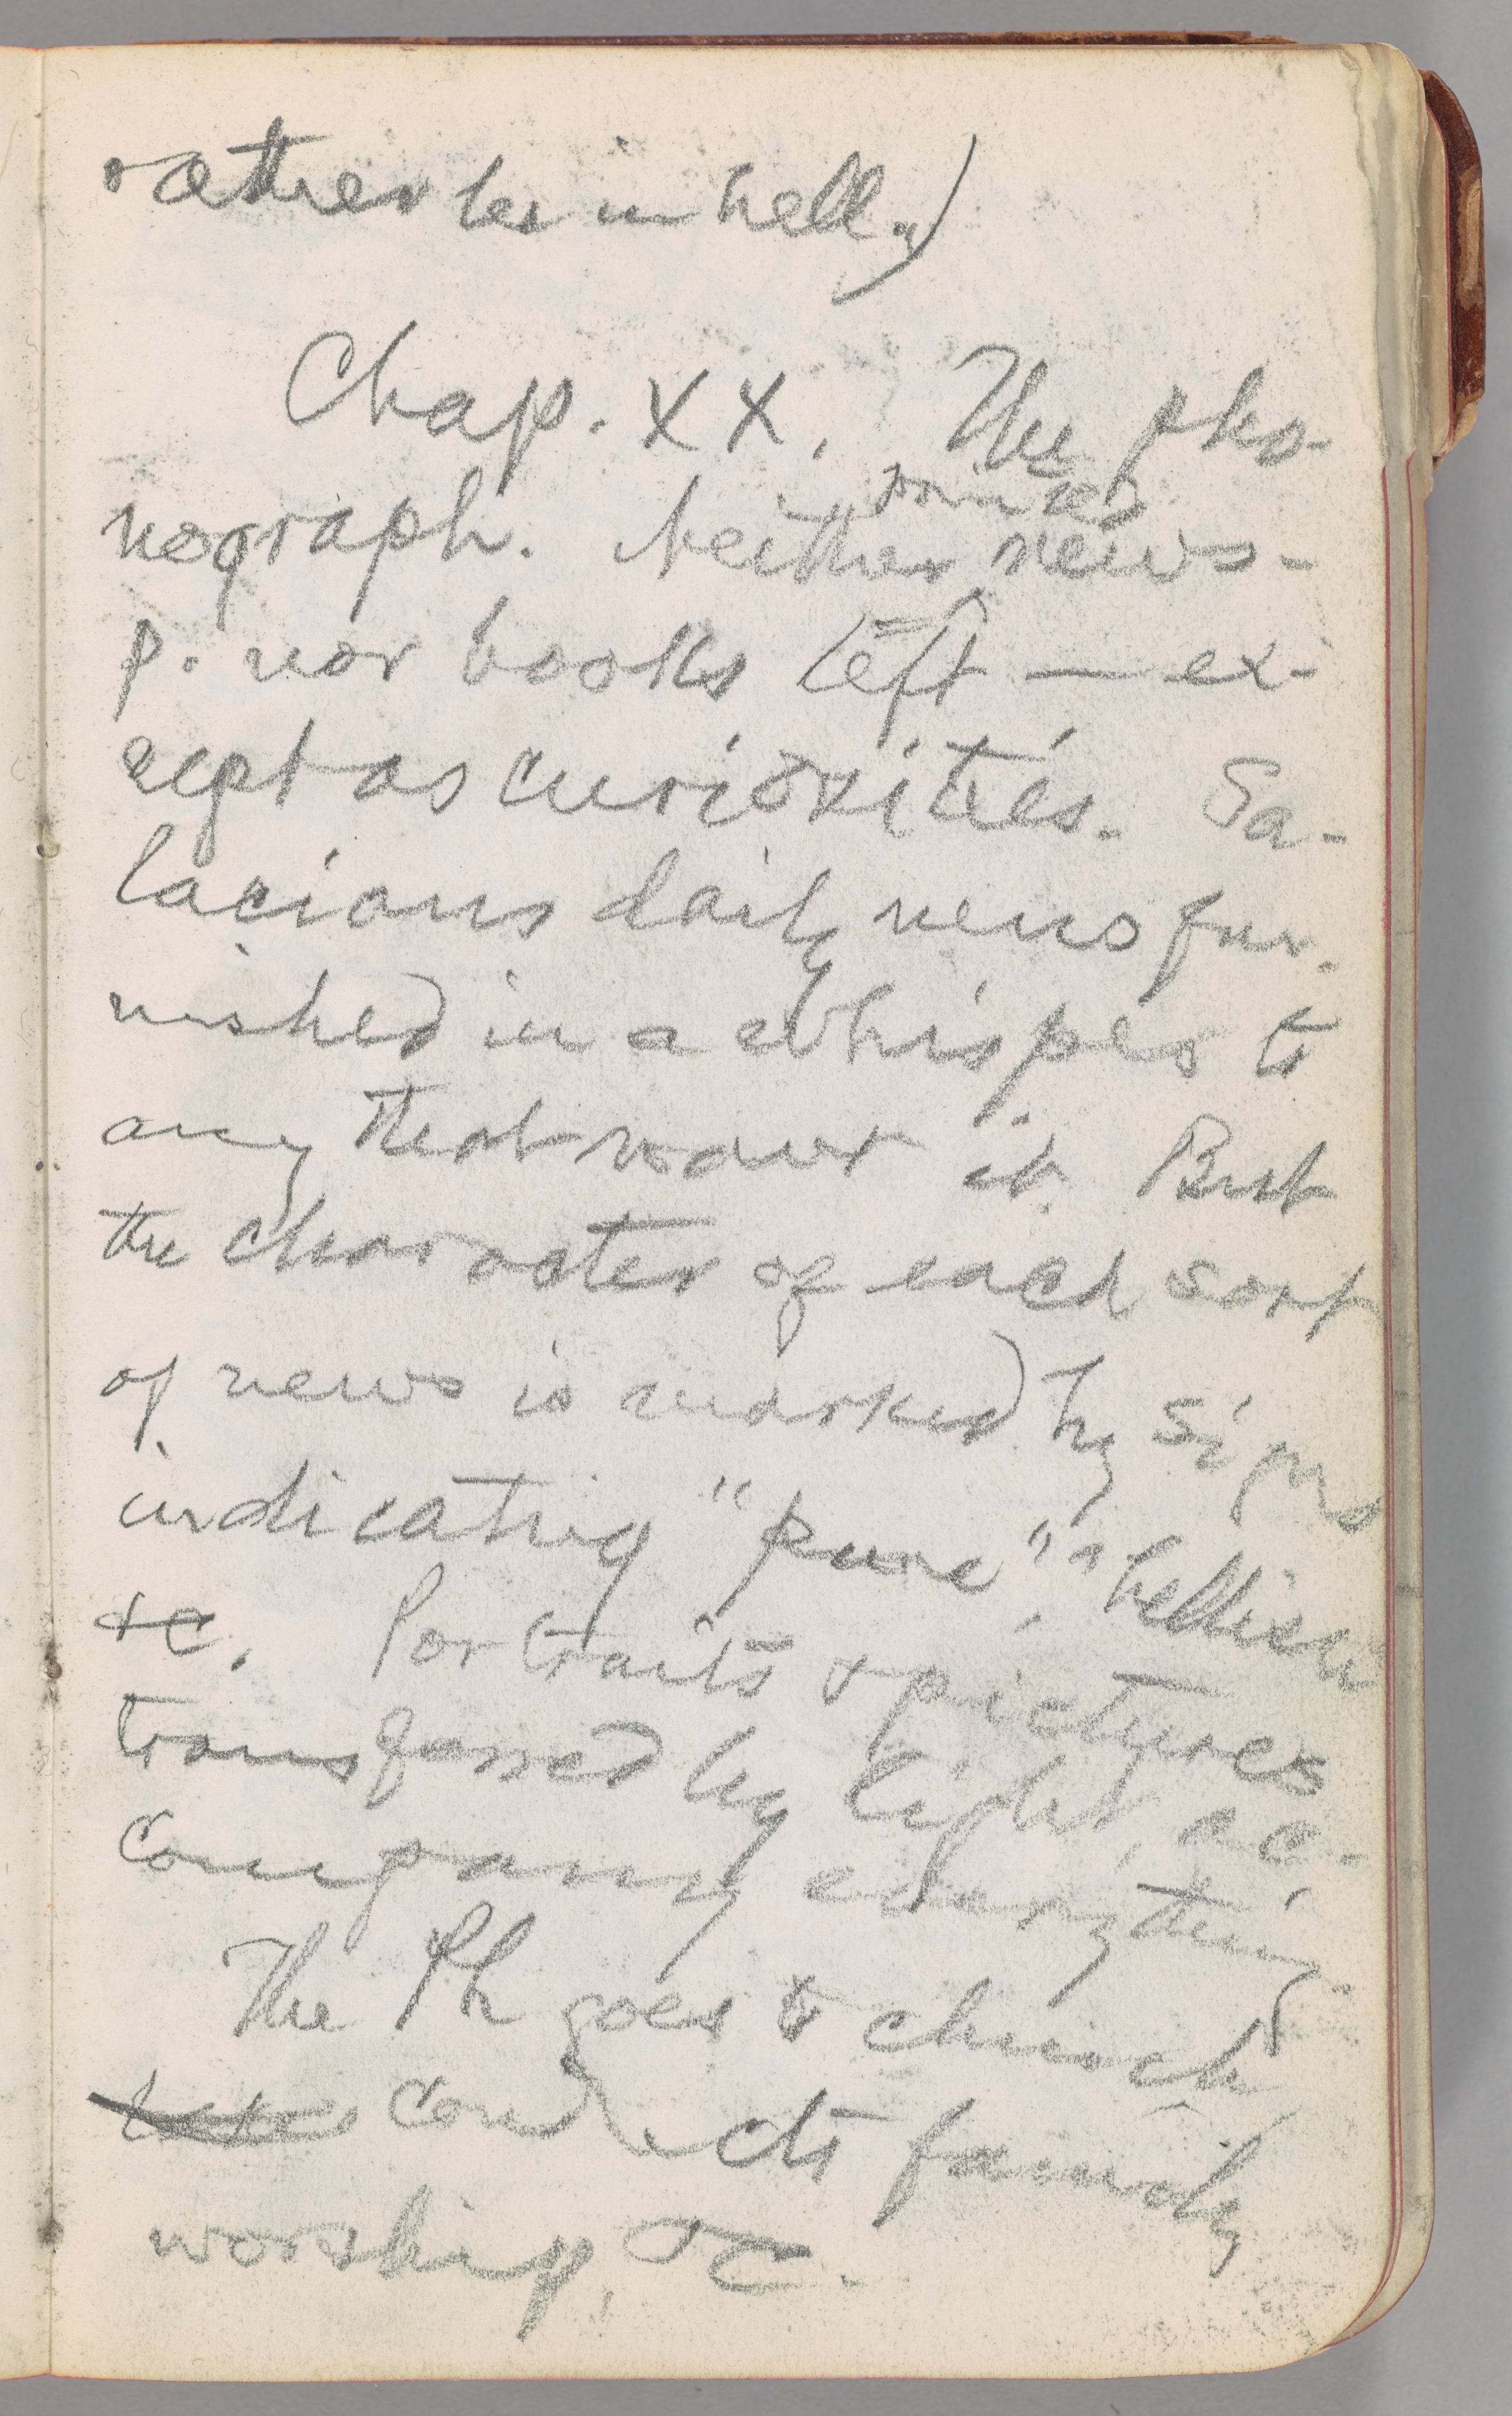 rather be in hell.)
Chap. XX. The pho-
nograph. Neither printed news-
p. nor books left — ex-
cept as curiosities. Sa-
lacious daily news fur-
nished in a whisper to
any that want it. But
the character of each sort
of news is marked by signs
indicating "pure", "hellish"
&c. Portraits & pictures
transferred by light, ac-
company everything.
The Ph goes to church,
conducts family
worship, &c.